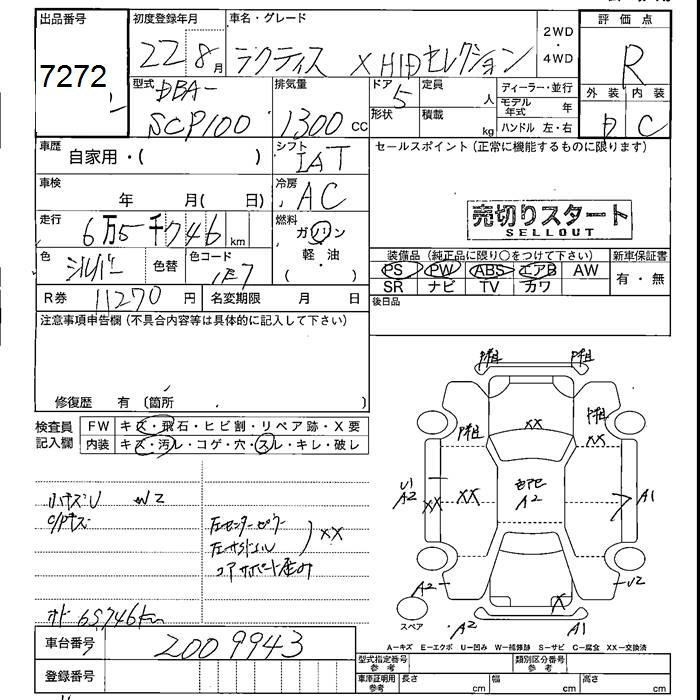 出品番号 初度登録年月 車名・グレード 2WD・4WD 評価点
7272 22 8月 ラクティス X HIDセレクション R
外装 内装
D C
型式 DBA- 排気量 ドア 定員 ディーラー・並行
SCP100 1300 CC 5 人 モデル年式 年
形状 積載 kg ハンドル 左・右
車歴 自家用・( ) シフト IAT セールスポイント(正常に機能するものに限ります)
車検 年 月( 日) 冷房 AC
売切りスタート
SELLOUT
走行 6万5千746 km 燃料 ガソリン・軽・油 ( )
色 シルバー 色替 色コード 1F7
装備品(純正品に限り○をつけて下さい) 新車保証書
PS PW ABS エアB AW 有・無
SR ナビ TV カワ
R券 11270 円 名変期限 月 日 後日品
注意事項申告欄(不具合内容等は具体的に記入して下さい)
修復歴 有(箇所 )
検査員記入欄 FW キズ・飛石・ヒビ割・リペア跡・X要
内装 キズ・汚れ・コゲ・穴・スレ・キレ・破レ
P組 P組
P組 XX P組
XX
U1
A2 XX XX A2 A1
A2 U2
X
スペア A2 A1
小キズU W2
左センターピラー
左サイドシル XX
コアサポート歪み
オド 65746km
A−キズ E−エクボ U−凹み W−補修跡 S−サビ C−腐食 XX−交換済
車台番号 2009943
型式指定番号 参考 類別区分番号 参考
登録番号 車庫証明用 参考 長さ cm 幅 cm 高さ cm